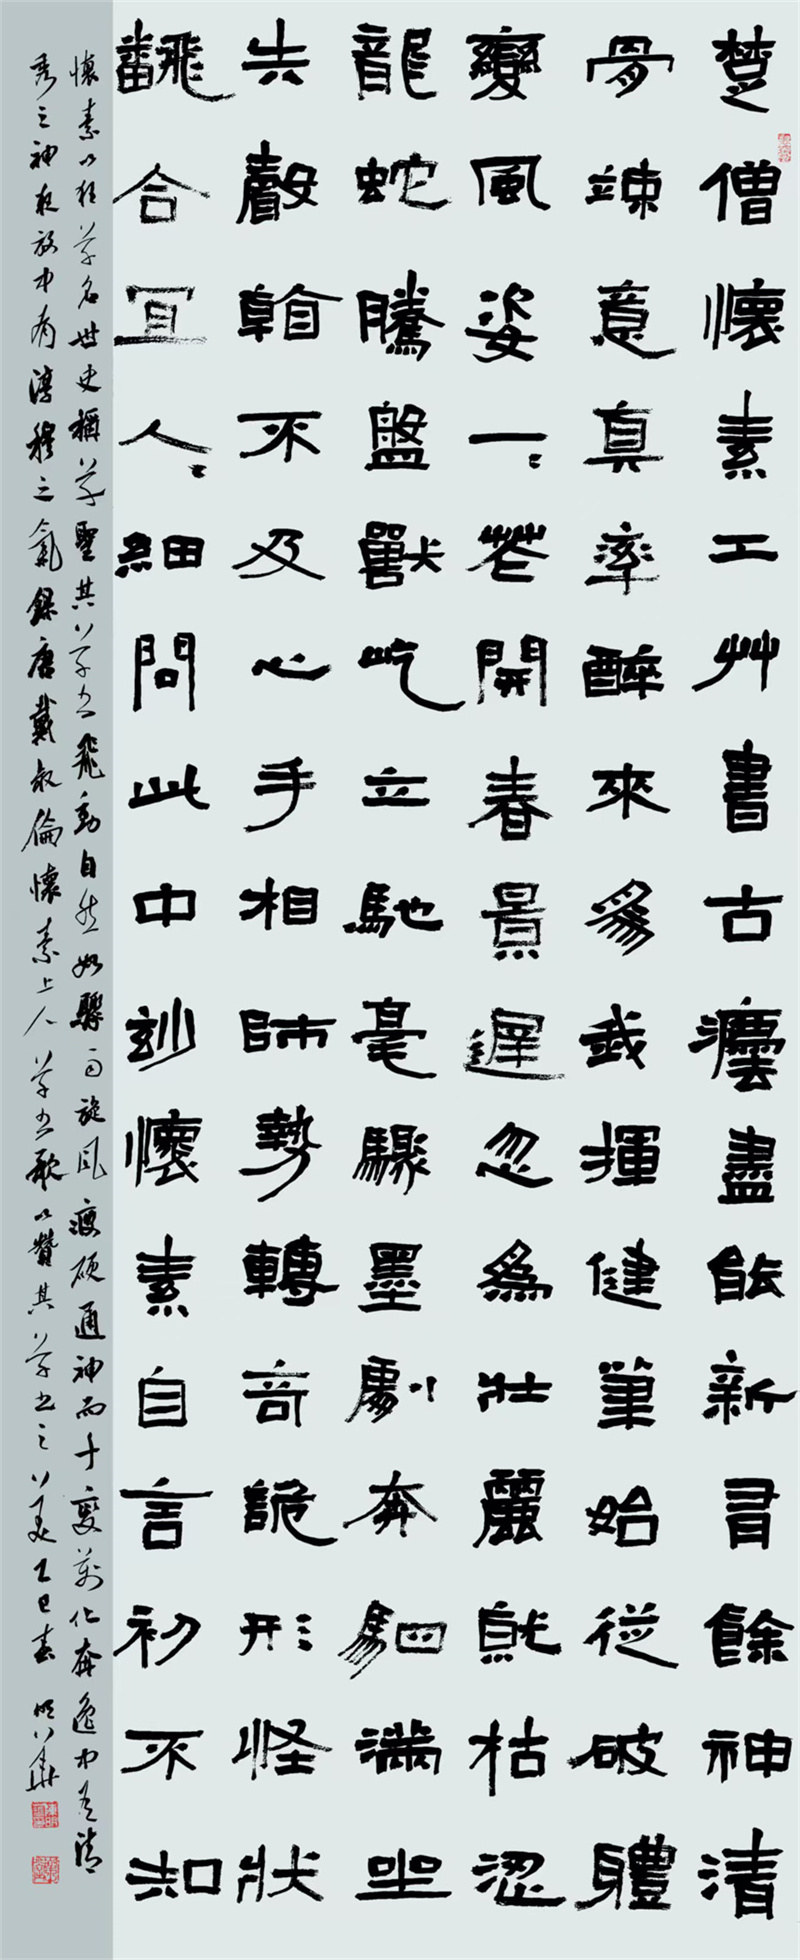 楚僧懷素工艸書古灋盡能新有餘神清
骨竦意真率醉來為我揮健筆始從破體
變風姿一〻花開春景遲忽為壯麗就枯澀
龍蛇騰盤獸屹立馳毫驟墨劇奔駟滿坐
失聲看不及心手相師勢轉奇詭形怪狀
翻合宜人〻細問此中妙懷素自言初不知
懷素以狂草名世史稱草聖其草書飛動自然如驟雨旋風瘦硬通神而千變萬化奔逸中有清
秀之神狂放中有淳穆之氣錄唐戴叔倫懷素上人草書歌以贊其草書之美乙巳春明華